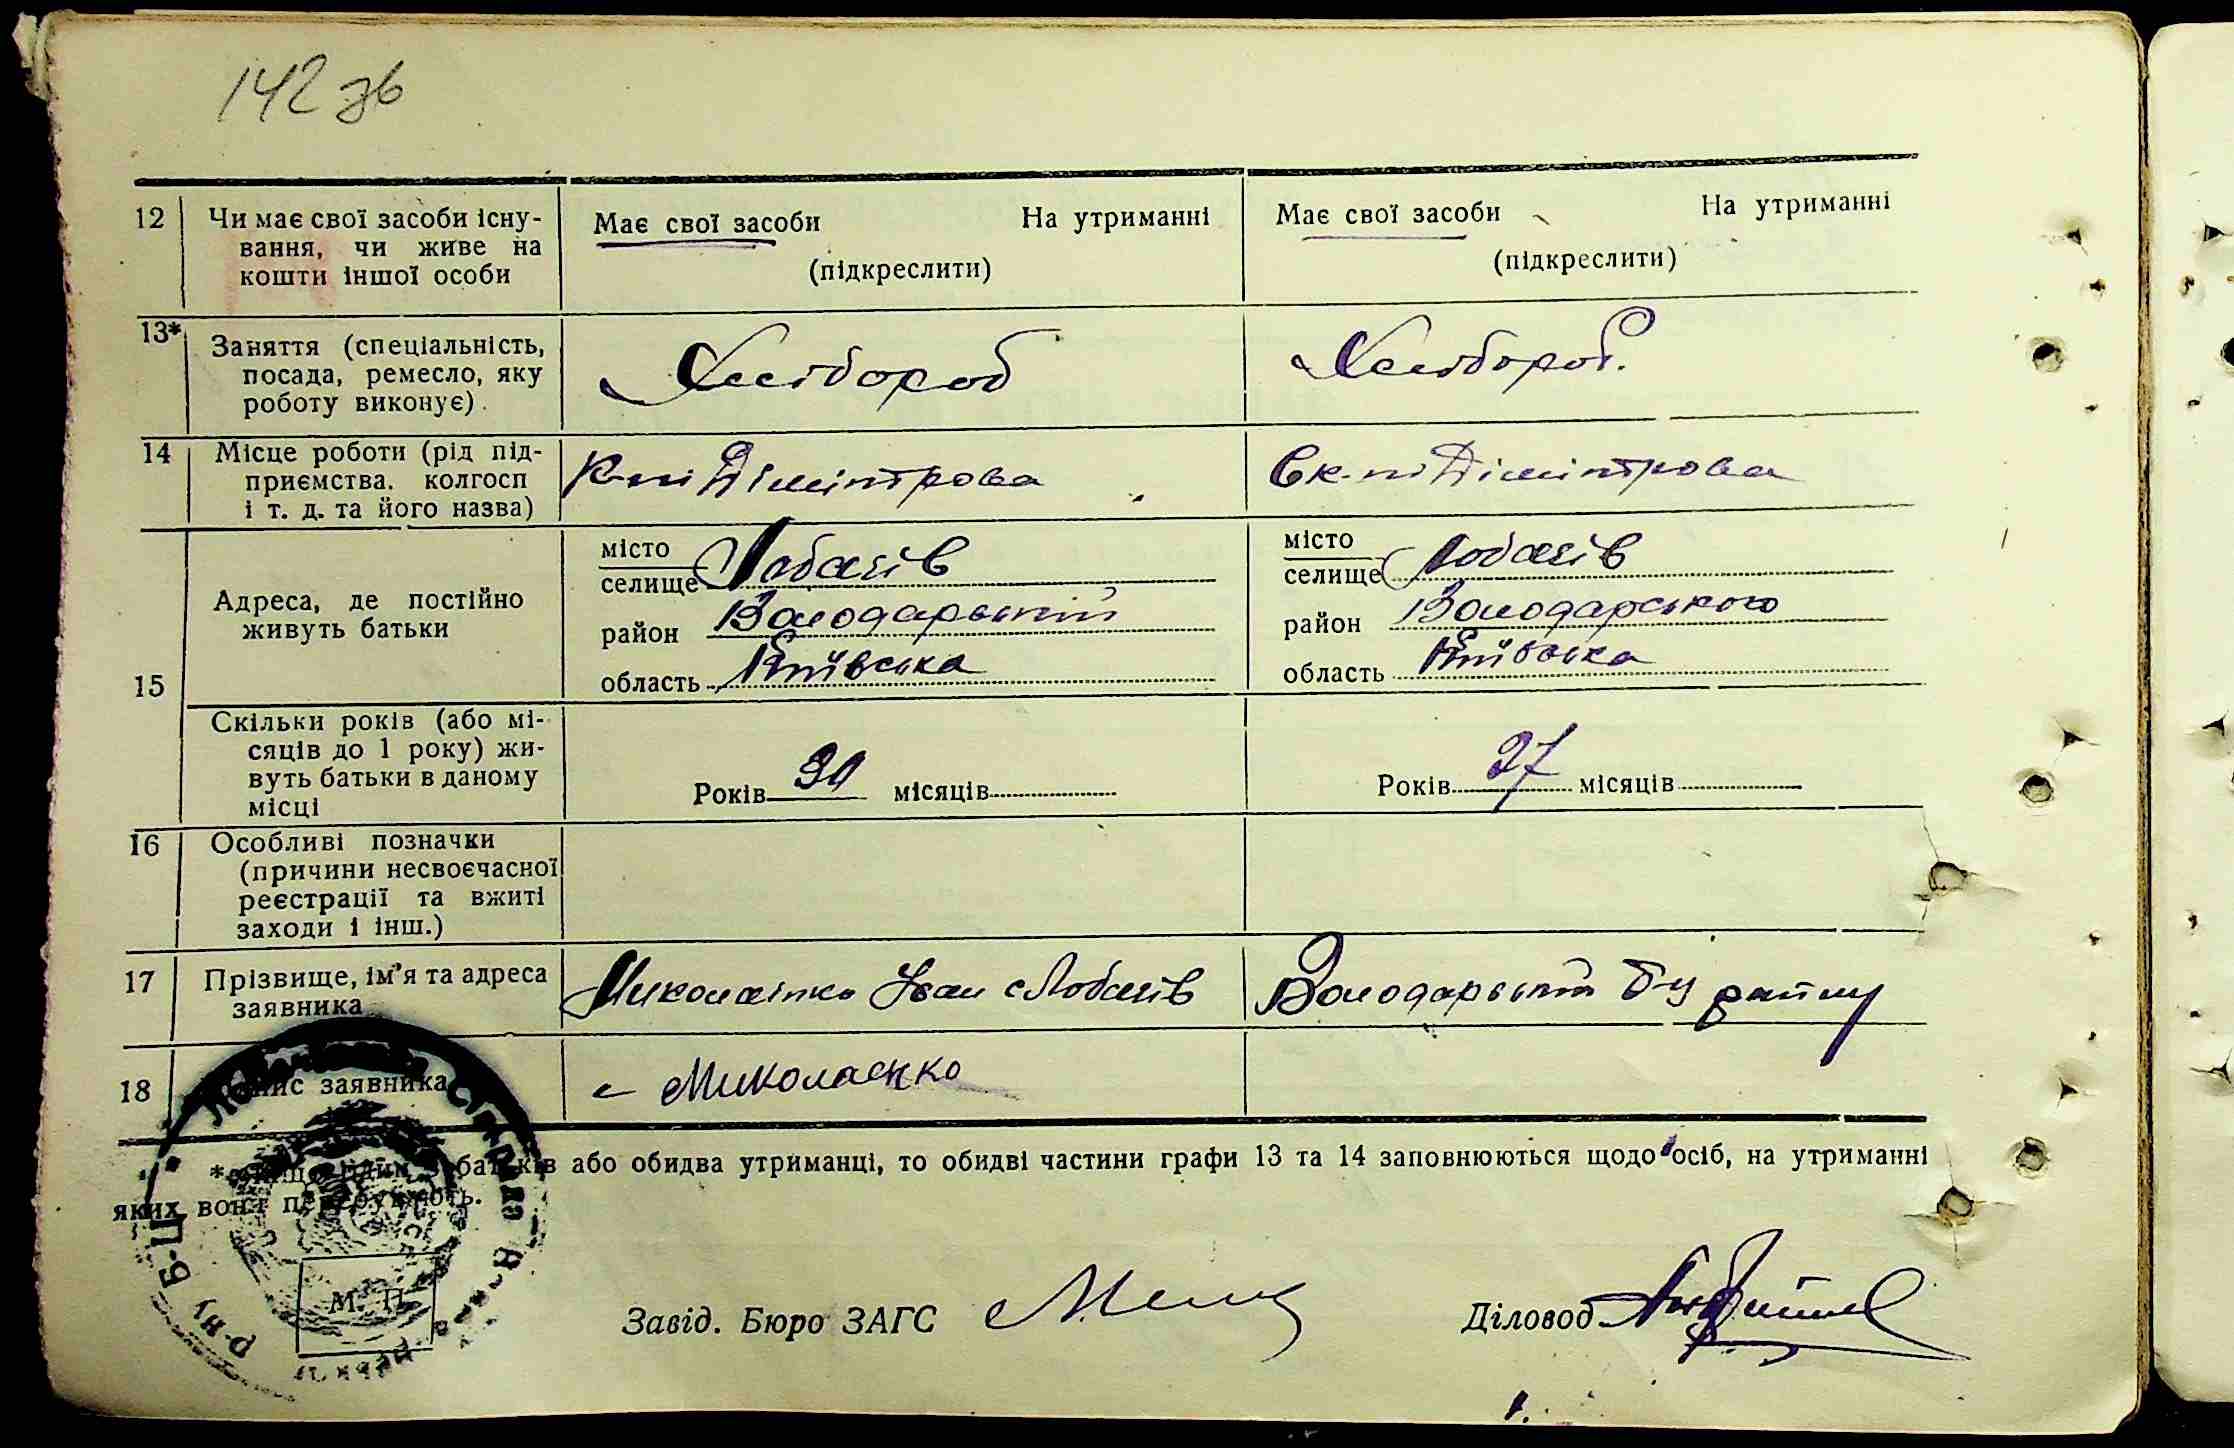 142 зв
12 Чи має свої засоби існу-
вання, чи живе на
кошти іншої особи
Має свої засоби На утриманні
(підкреслити)
Має свої засоби На утриманні
(підкреслити)
13* Заняття (спеціальність,
посада, ремесло, яку
роботу виконує).
Хлібороб
Хлібороб.
14 Місце роботи (рід під-
приємства. колгосп
і т. д. та його назва)
К-пі Дімітрова
Вк-пі Дімітрова
15 Адреса, де постійно
живуть батьки
місто
селище Лобачів
район Володарський
область Київська
місто
селище Лобачів
район Володарського
область Київська
Скільки років (або мі-
сяців до 1 року) жи-
вуть батьки в даному
місці
Років 30 місяців
Років 27 місяців
16 Особливі позначки
(причини несвоєчасної
реєстрації та вжиті
заходи і інш.)
17 Прізвище, ім'я та адреса
заявника
Миколаєнко Іван с Лобачів
Володарський Б-Ц району
18 Підпис заявника
Миколаєнко
* Якщо один з батьків або обидва утриманці, то обидві частини графи 13 та 14 заповнюються щодо осіб, на утриманні
яких вони перебувають.
р-ну Б-Ц
М. П.
Завід. Бюро ЗАГС
Діловод